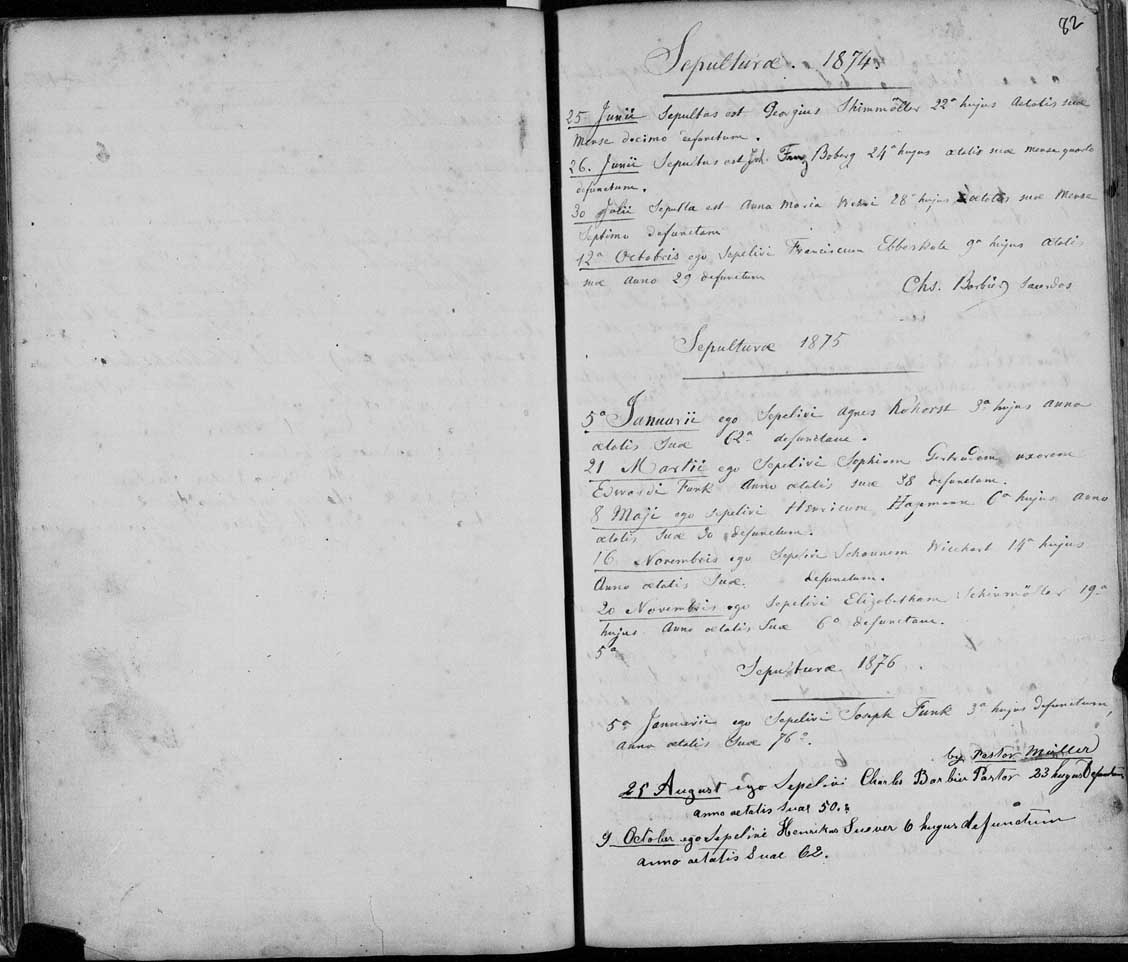 82
Sepulturæ. 1874.
25 Junii Sepultus est Georgius 22ª hujus Aetatis suæ
Mense decimo defunctum.
26. Junii Sepultus est Joh. Franz Boberg 24ª hujus ætatis suæ mense quarto
defunctum.
30 Julii Sepulta est Anna Maria 28ª hujus ætatis suæ Mense
Septimo defunctam
12ª Octobris ego Sepelivi Franciscum 9ª hujus ætatis
suæ Anno 29 defunctum
Chs. Barbier Sacerdos
Sepulturæ 1875
5ª Januarii ego Sepelivi Agnes Kohorst 3ª hujus anno
ætatis Suæ 62ª defunctam.
21 Martii ego Sepelivi Sophiam Gertrudem uxorem
Edwardi Funk Anno ætatis suæ 38 defunctam.
8 Maji ego Sepelivi Henricum 6ª hujus Anno
ætatis Suæ 30 defunctum.
16 Novembris ego Sepelivi 14ª hujus
Anno ætatis Suæ. defunctum.
20 Novembris ego Sepelivi Elizabetham 19ª
hujus Anno ætatis Suæ 6ª defunctam.
5ª
Sepulturæ 1876
5ª Januarii ego Sepelivi Joseph Funk 3ª hujus defunctum,
anno ætatis Suæ 76º.
by Pastor Müller
25 August ego Sepelivi Charles Barbier Pastor 23 hujus Defunctum
anno aetatis Suae 50.
9 October ego Sepelivi Henrikus 6 hujus defunctum
anno aetatis Suae 62.